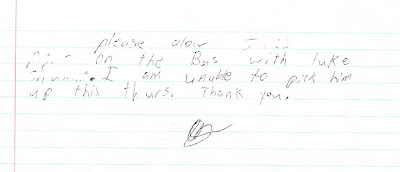 please alow
on the Bus with luke
I am unable to pick him
up this thurs. Thank you.